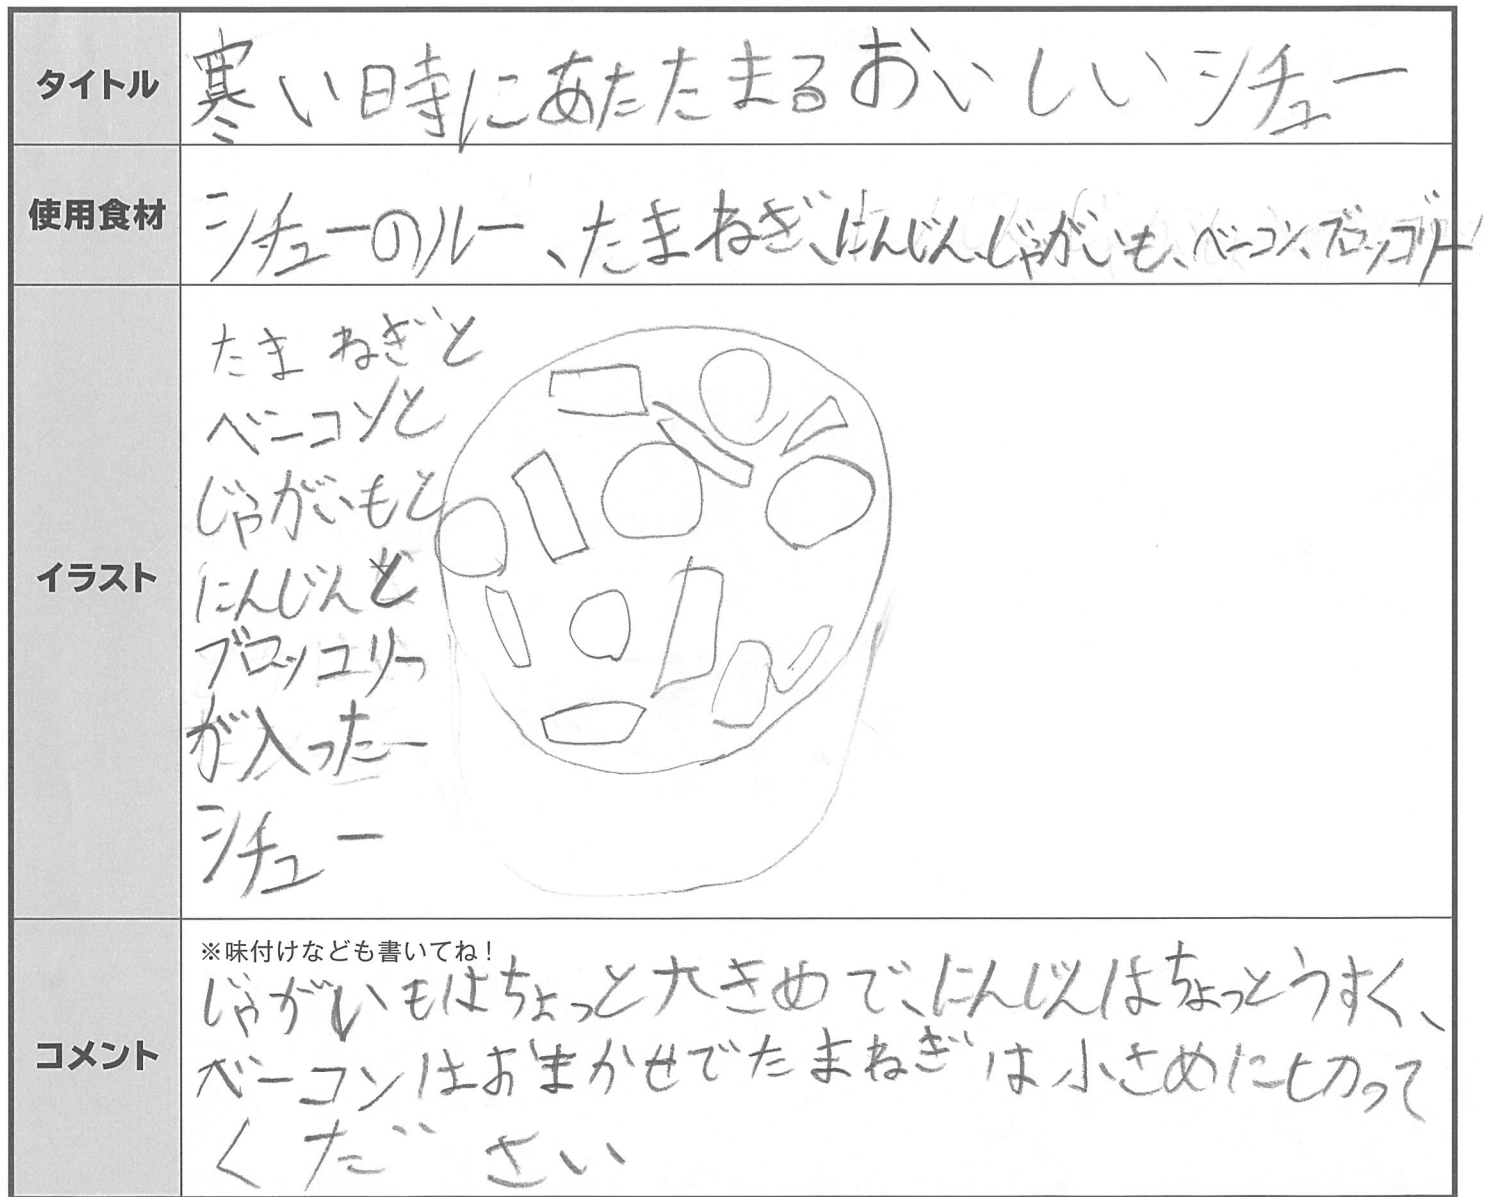 タイトル
寒い時にあたたまるおいしいシチュー
使用食材
シチューのルー、たまねぎ、にんじん、じゃがいも、ベーコン、ブロッコリー
イラスト
たまねぎと
ベーコンと
じゃがいもと
にんじんと
ブロッコリー
が入った
シチュー
コメント
※味付けなども書いてね！
じゃがいもはちょっと大きめで、にんじんはちょっとうすく、
ベーコンはおまかせでたまねぎは小さめに切って
ください